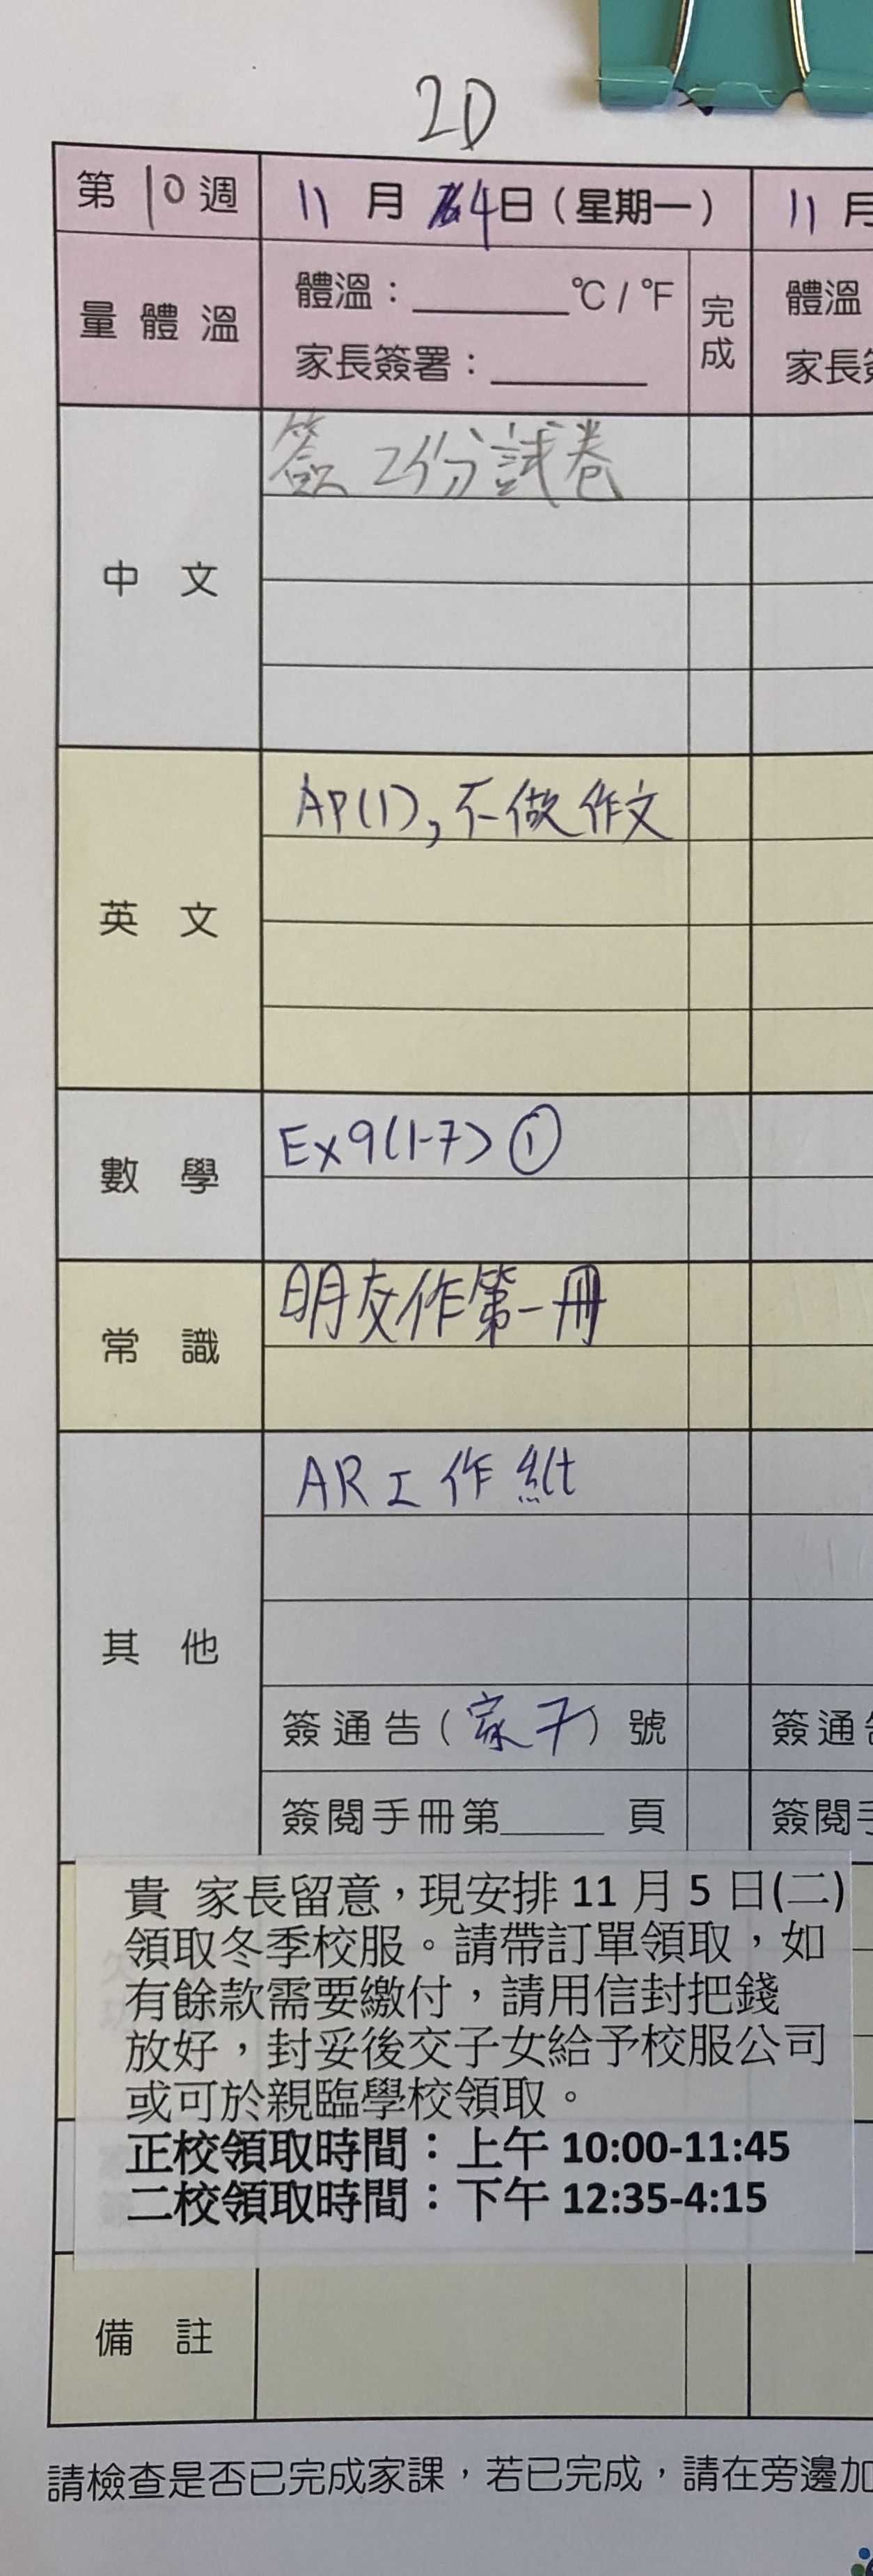 2D
第10週 11月4日(星期一) 11月
量體溫 體溫：______°C/°F 完成 體溫
家長簽署：______ 家長簽
中文 簽2份試卷
英文 AP(1),不做作文
數學 Ex9(1-7)①
常識 明友作第一冊
其他 AR工作紙
簽通告(家7)號 簽通告
簽閱手冊第____頁 簽閱手
貴 家長留意，現安排11月5日(二)
領取冬季校服。請帶訂單領取，如
有餘款需要繳付，請用信封把錢
放好，封妥後交子女給予校服公司
或可於親臨學校領取。
正校領取時間：上午10:00-11:45
二校領取時間：下午12:35-4:15
備註
請檢查是否已完成家課，若已完成，請在旁邊加